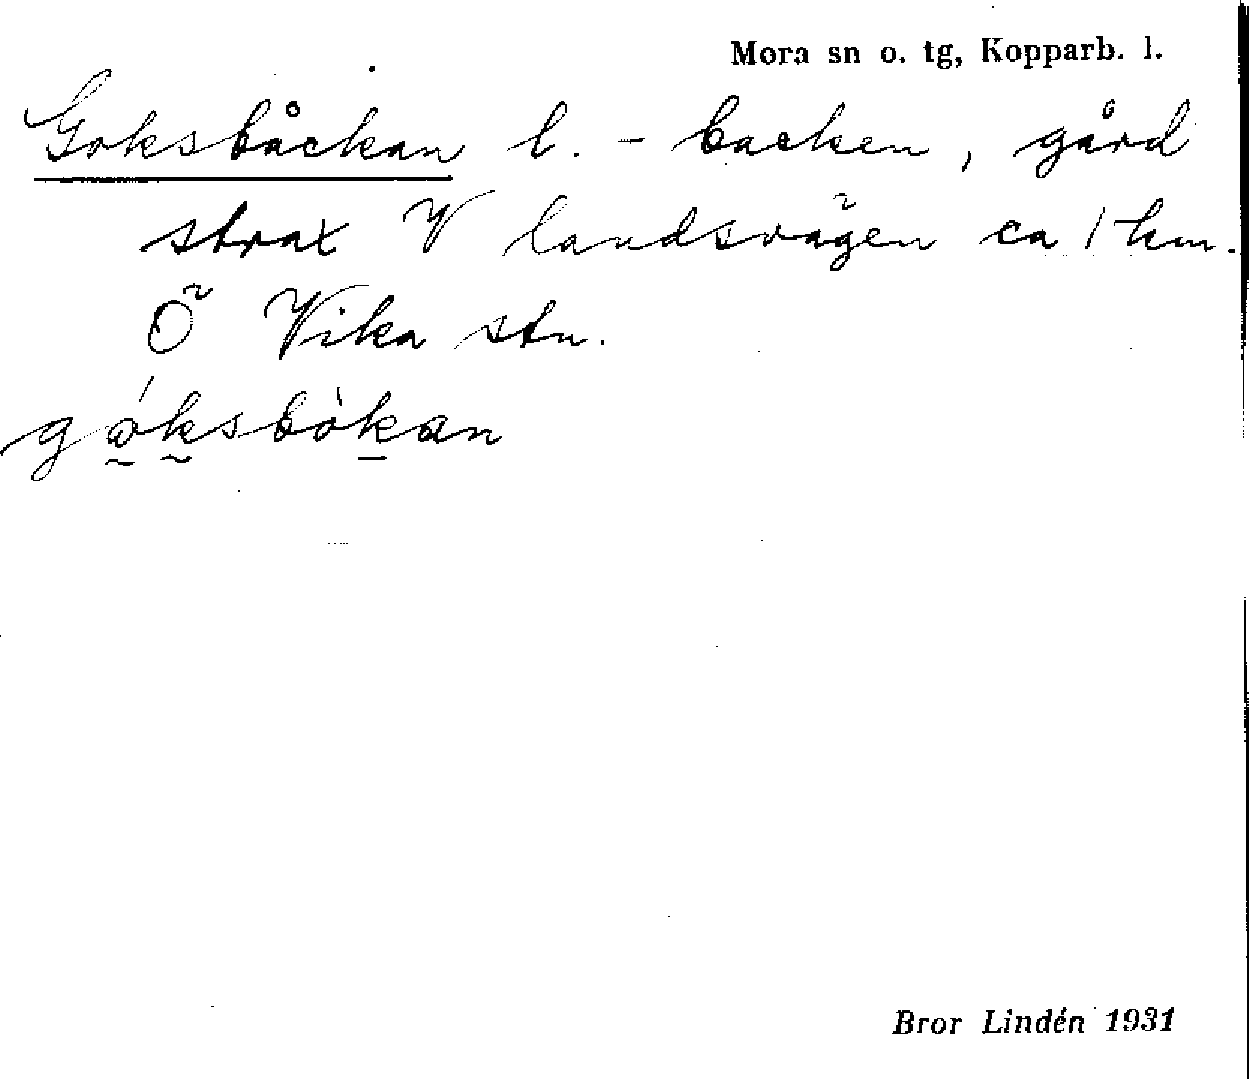 Mora sn o. tg, Kopparb. l.
Goksbåckan l. -backen, gård
strax V landsvägen ca 1 km.
Ö Vika stn.
góksbòkan
Bror Lindén 1931